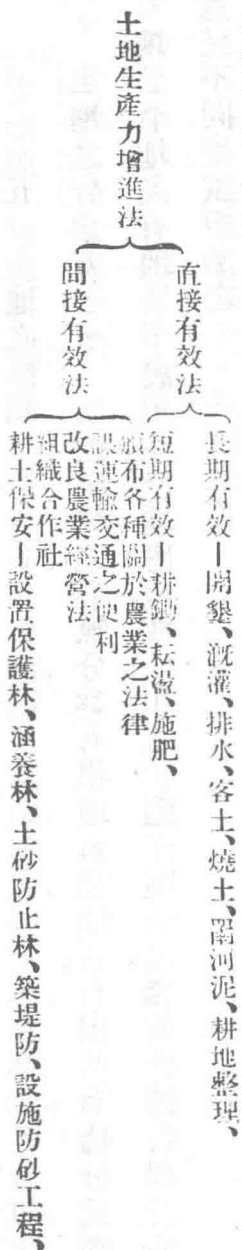 土地生產力增進法
直接有效法
長期有效—開墾、溉灌、排水、客土、燒土、罱河泥、耕地整理、
短期有效—耕鋤、耘盪、施肥、
間接有效法
頒布各種關於農業之法律
謀運輸交通之便利
改良農業經營法
組織合作社
耕土保安—設置保護林、涵養林、土砂防止林、築堤防、設施防砂工程、